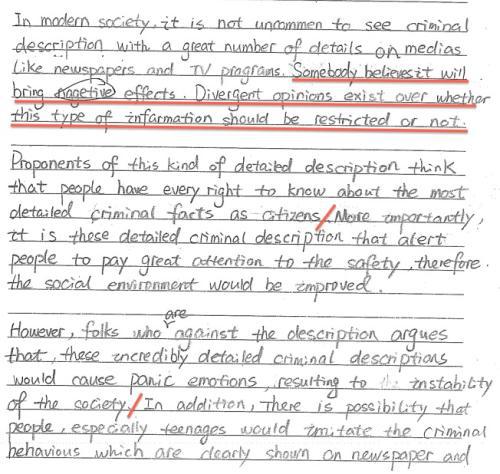 In modern society, it is not uncommen to see criminal
description with a great number of details on medias
like newspapers and TV programs. Somebody believes it will
bring nagetive effects. Divergent opinions exist over whether
this type of infarmation should be restricted or not.
Proponents of this kind of detailed description think
that people have every right to know about the most
detailed criminal facts as citizens. More importantly,
it is these detailed criminal description that alert
people to pay great attention to the safety, therefore.
the social environment would be improved.
However, folks who are against the description argues
that, these incredibly detailed criminal descriptions
would cause panic emotions, resulting to instability
of the society. In addition, There is possibility that
people, especially teenages would imitate the criminal
behavious which are clearly shown on newspaper and